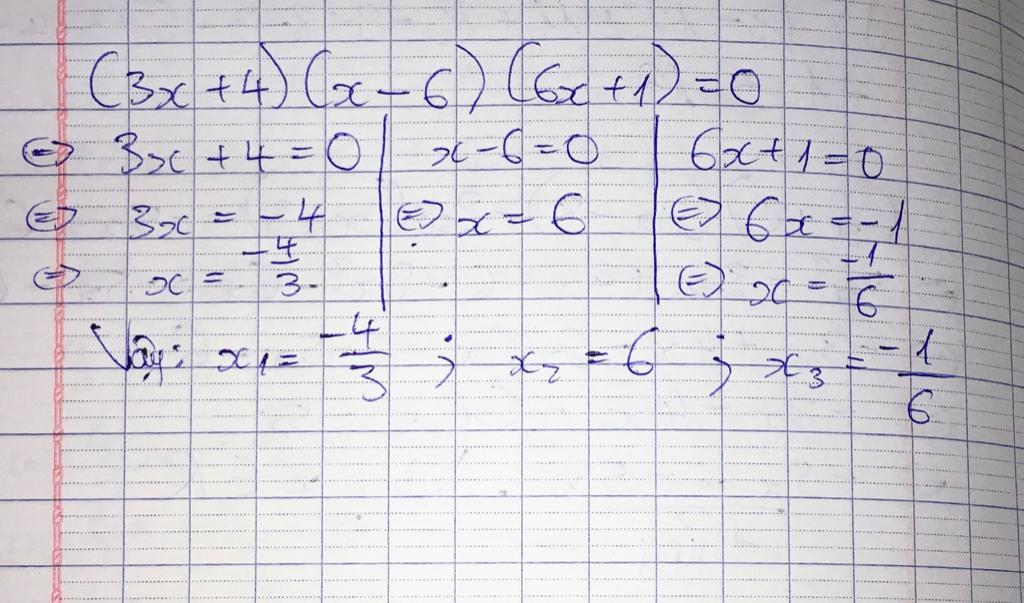 (3x + 4) (x - 6) (6x + 1) = 0
⇔ 3x + 4 = 0 | x - 6 = 0 | 6x + 1 = 0
⇔ 3x = -4 | ⇔ x = 6 | ⇔ 6x = -1
⇔ x = -4/3 | | ⇔ x = -1/6
Vậy: x₁ = -4/3 ; x₂ = 6 ; x₃ = -1/6